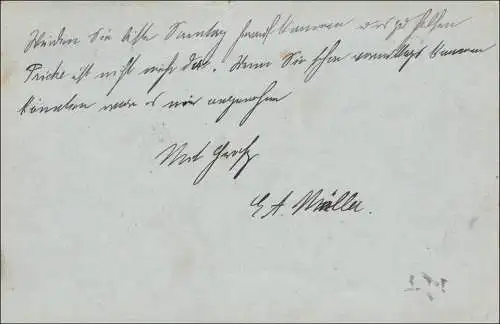 Würden Sie bitte Sonntag herauf kommen uns zu helfen
Fricke ist nicht mehr da. Wenn Sie schon vormittags kommen
könnten wäre es mir angenehm
Mit Gruß
E A. Müller.